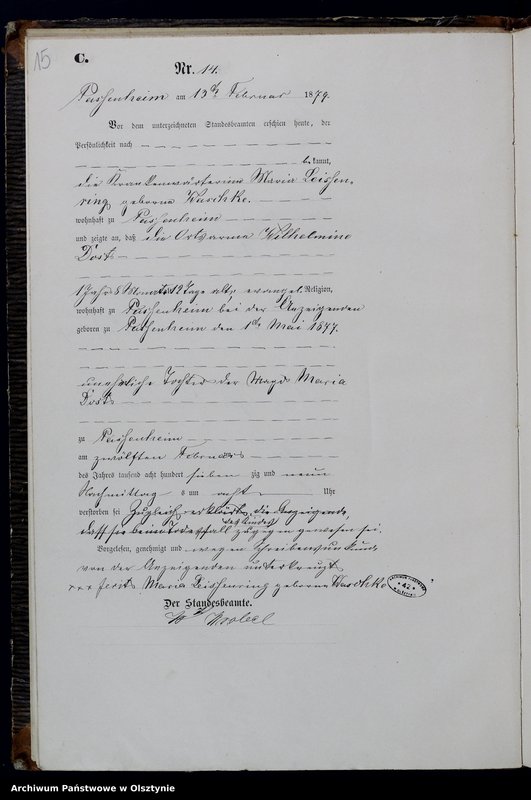 15
C.
Nr. 14.
Passenheim am 13ten Februar 1879.
Vor dem unterzeichneten Standesbeamten erschien heute, der
Persönlichkeit nach
be kannt,
die Krankenwärterin Maria Leissen-
ring geborne Waschke.
wohnhaft zu Passenheim
und zeigte an, daß die Ortsarme Wilhelmine
Dost
1 Jahr 8 Monate 12 Tage alt, evangel. Religion,
wohnhaft zu Passenheim bei der Anzeigenden
geboren zu Passenheim den 1ten Mai 1877.
uneheliche Tochter der Magd Maria
Dost
zu Passenheim
am zwölften Februar
des Jahres tausend acht hundert sieben zig und neun
Nachmittag s um acht Uhr
verstorben sei Zugleich erklärt die Anzeigende,
daß sie beim Todesfall des Kindes zugegen gewesen sei.
Vorgelesen, genehmigt und wegen Schreibensunkunde
von der Anzeigenden unterkreuzt
+++ fecit Maria Leissenring geborne Waschke
Der Standesbeamte.
Archiwum Państwowe w Olsztynie